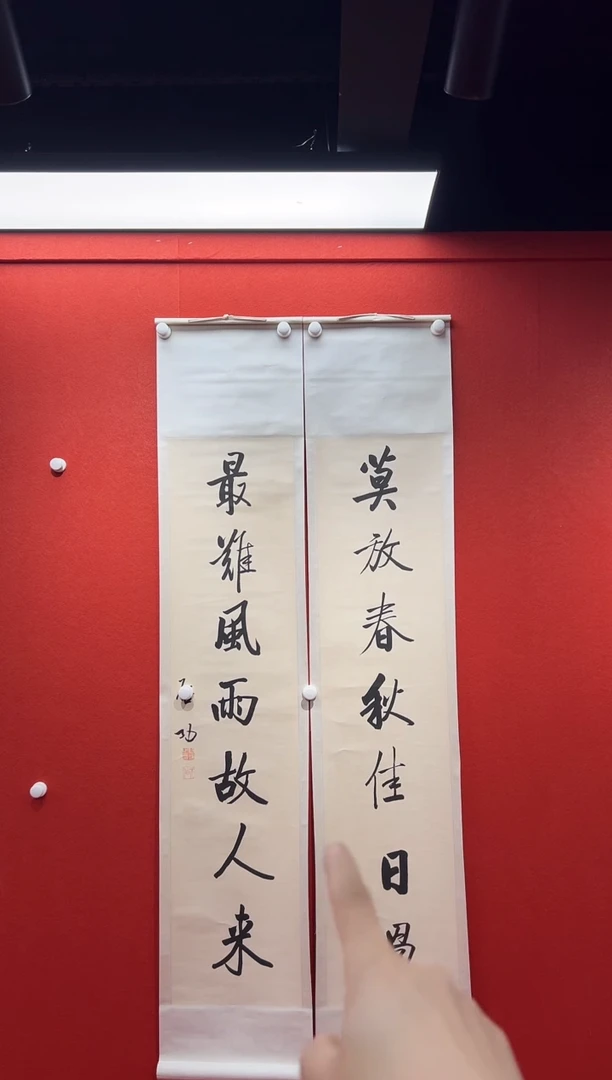 莫放春秋佳日過
最難風雨故人来
启功